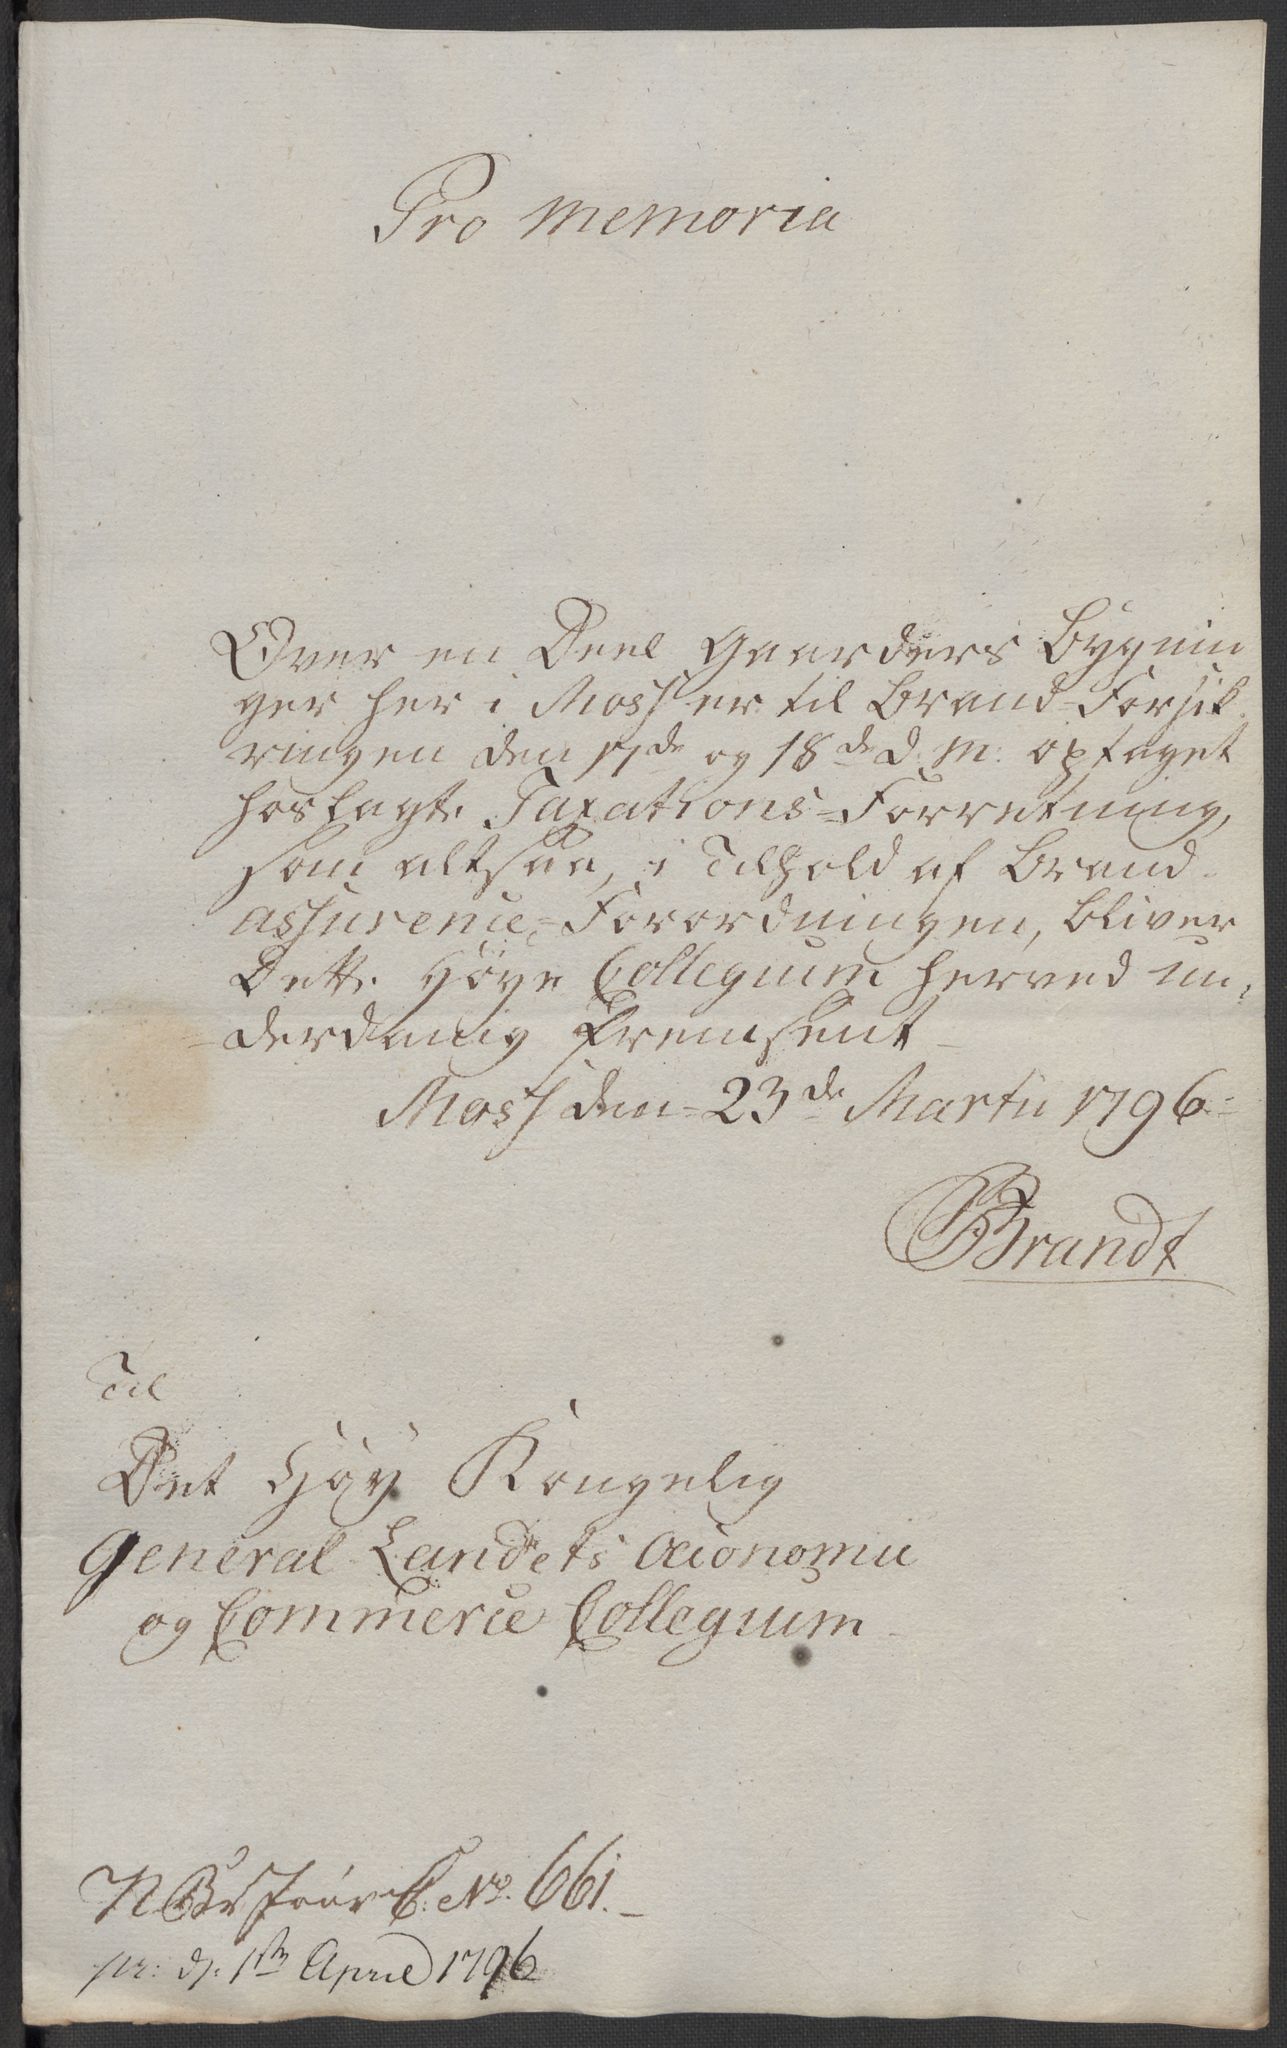 Pro Memoria
Over en Deel Gaarders Bygnin
ger her i Moss er til Brand-Forsik
ringen den 17de og 18de d. M: optaget
hoslagte Taxations-Forretning,
som altsaa, i Tilhold af Brand-
assurence-Forordningen, bliver
Dette Høye Collegium herved un-
derdanig fremsent
Moss den 23de Martii 1796
Brandt
Til
Det Høy Kongelig
General Landets Oeconomie
og Commerce Collegium
No. 661.
pr: d: 1ste April 1796